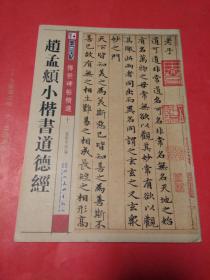 傳世碑帖精選
趙孟頫小楷書道德經
老子
道可道非常道名可名非常名無名天地之始
有名萬物之母常無欲以觀其妙常有欲以觀
其徼此兩者同出而異名同謂之玄玄之又玄衆
妙之門
天下皆知美之為美斯惡已皆知善之為善斯不
善已故有無之相生難易之相成長短之相形高